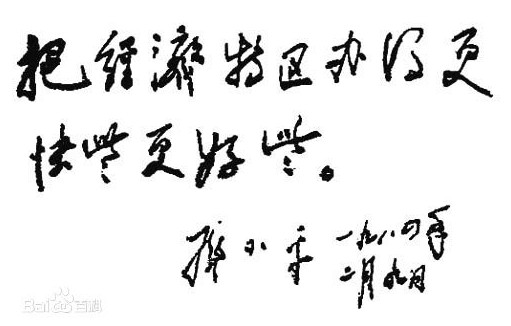 把經濟特区办得更
快些更好些。
邓小平 一九八四年
二月九日
Bai百科